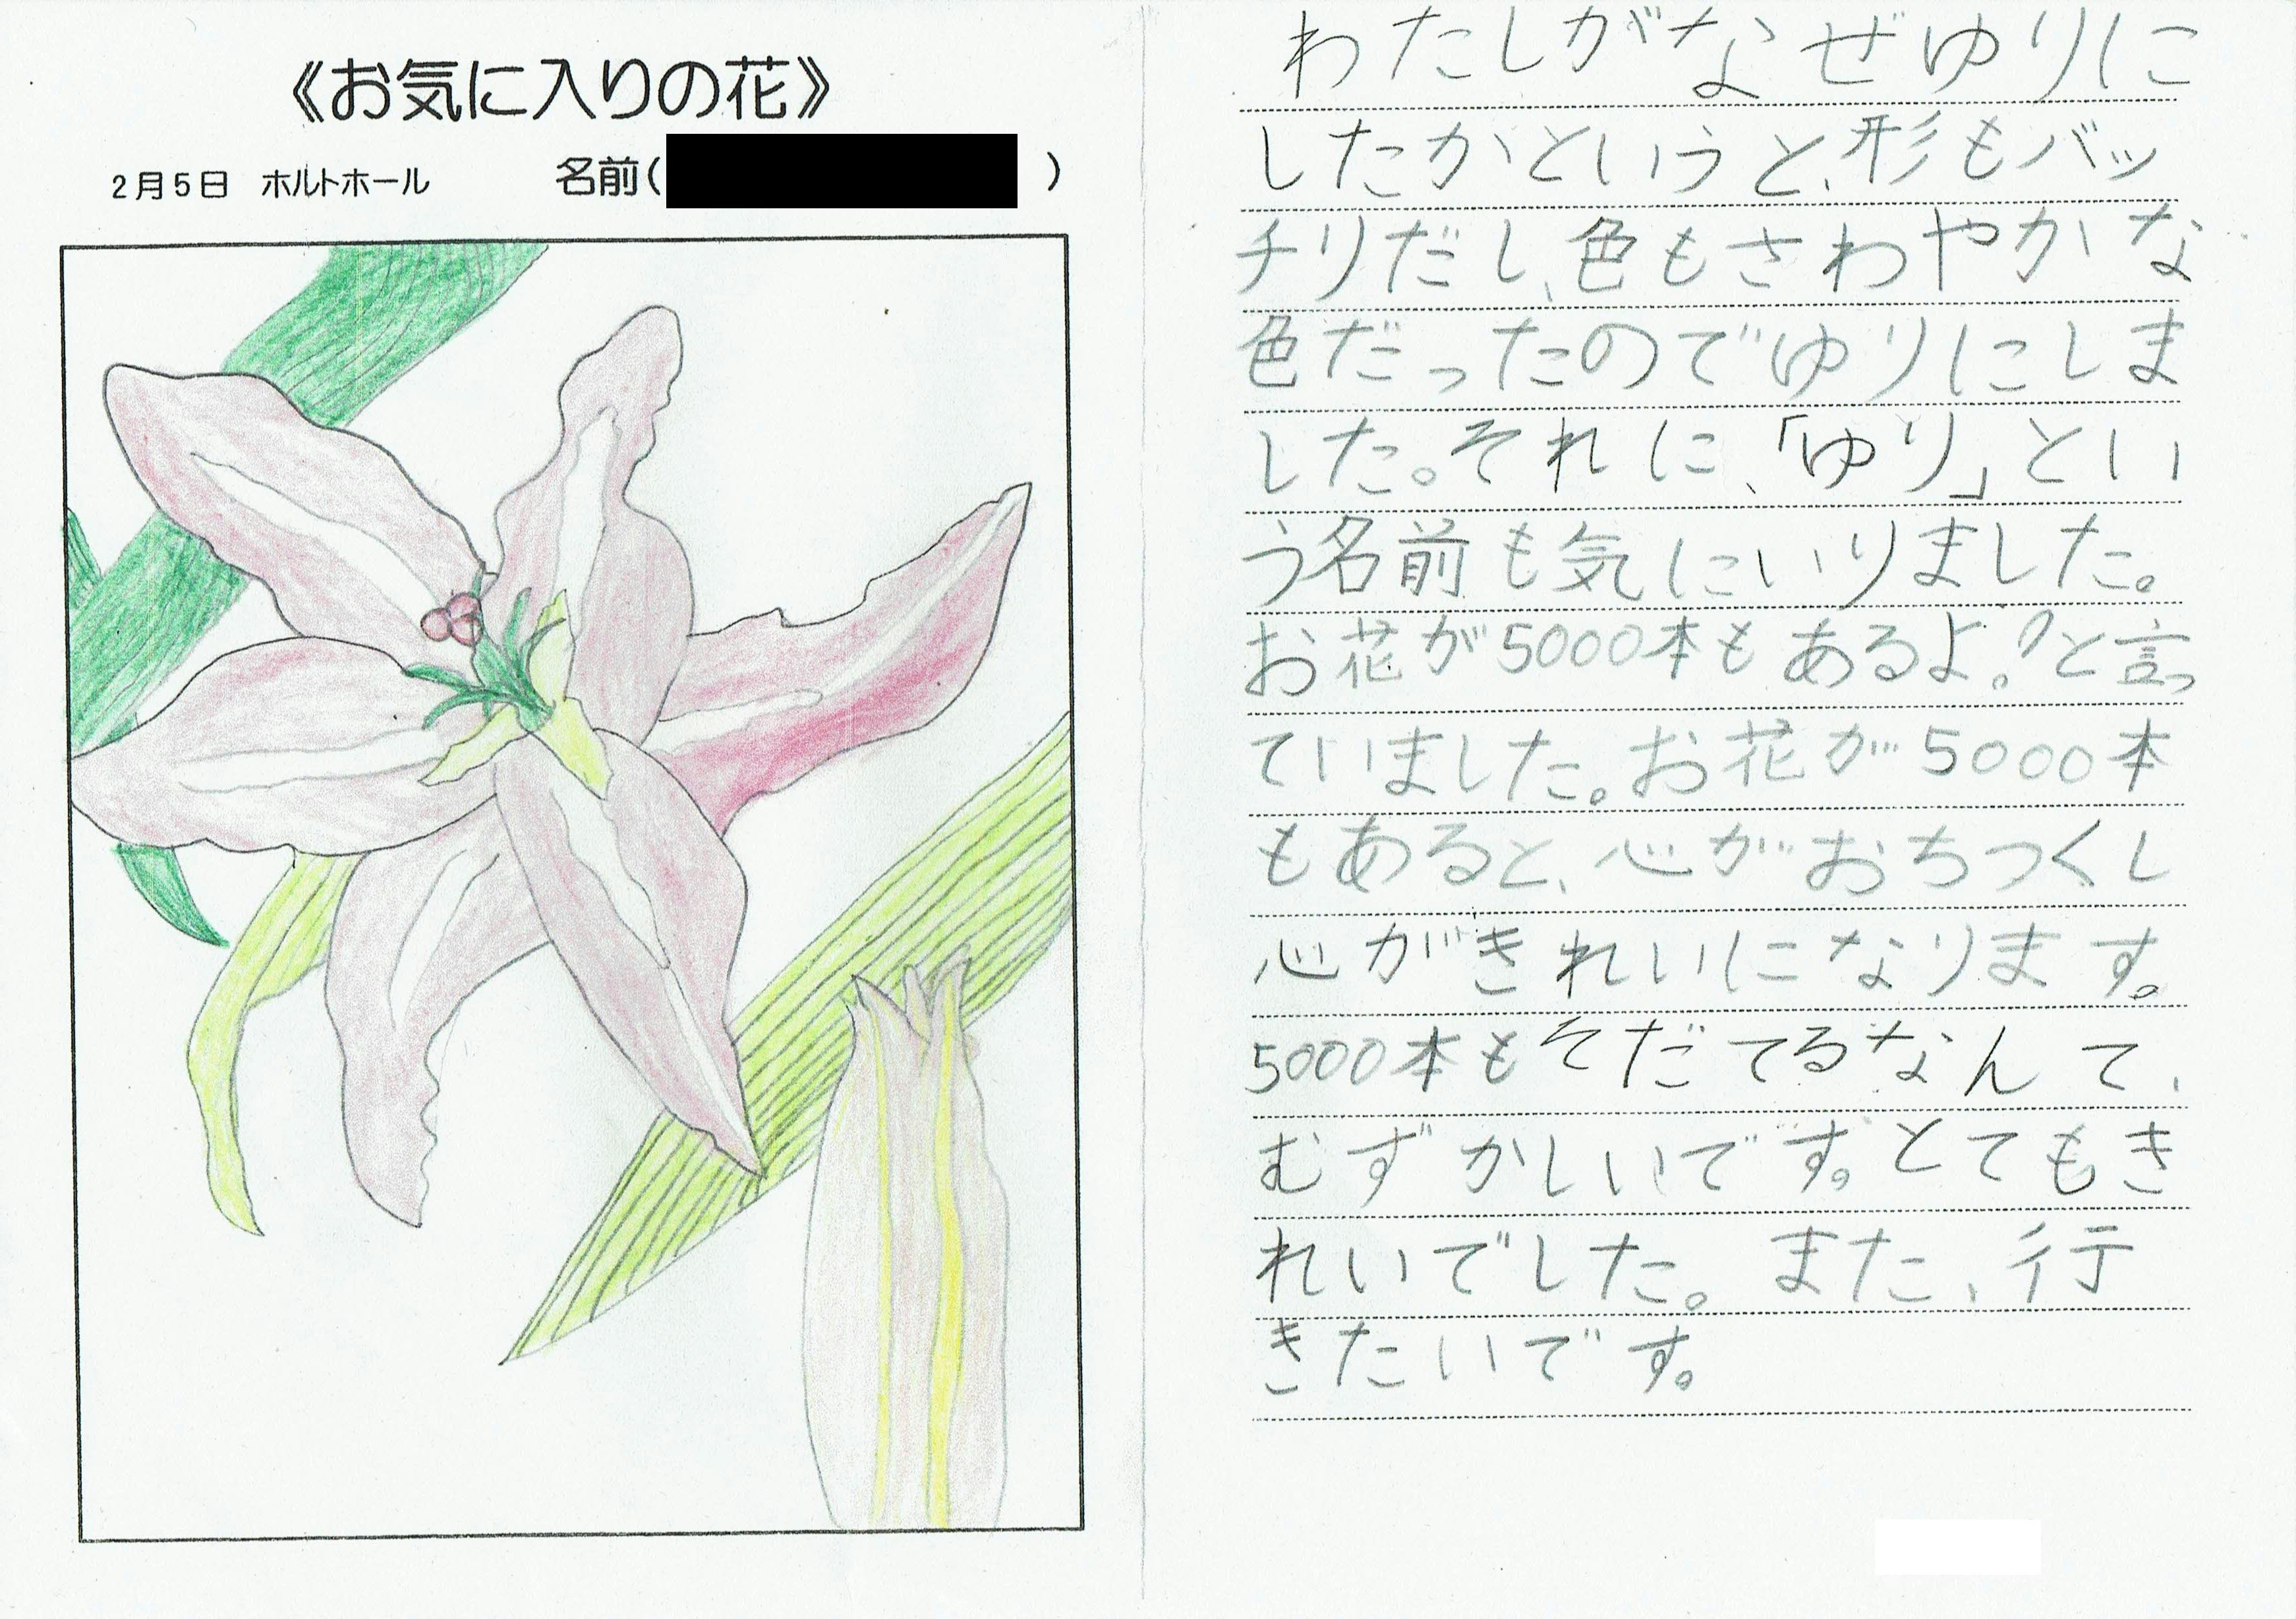 《お気に入りの花》
2月5日 ホルトホール 名前( )
わたしがなぜゆりに
したかというと、形もバッ
チリだし、色もさわやかな
色だったのでゆりにしま
した。それに、「ゆり」とい
う名前も気にいりました。
お花が5000本もあるよ。と言っ
ていました。お花が5000本
もあると、心がおちつくし
心がきれいになります。
5000本もそだてるなんて、
むずかしいです。とてもき
れいでした。また、行
きたいです。